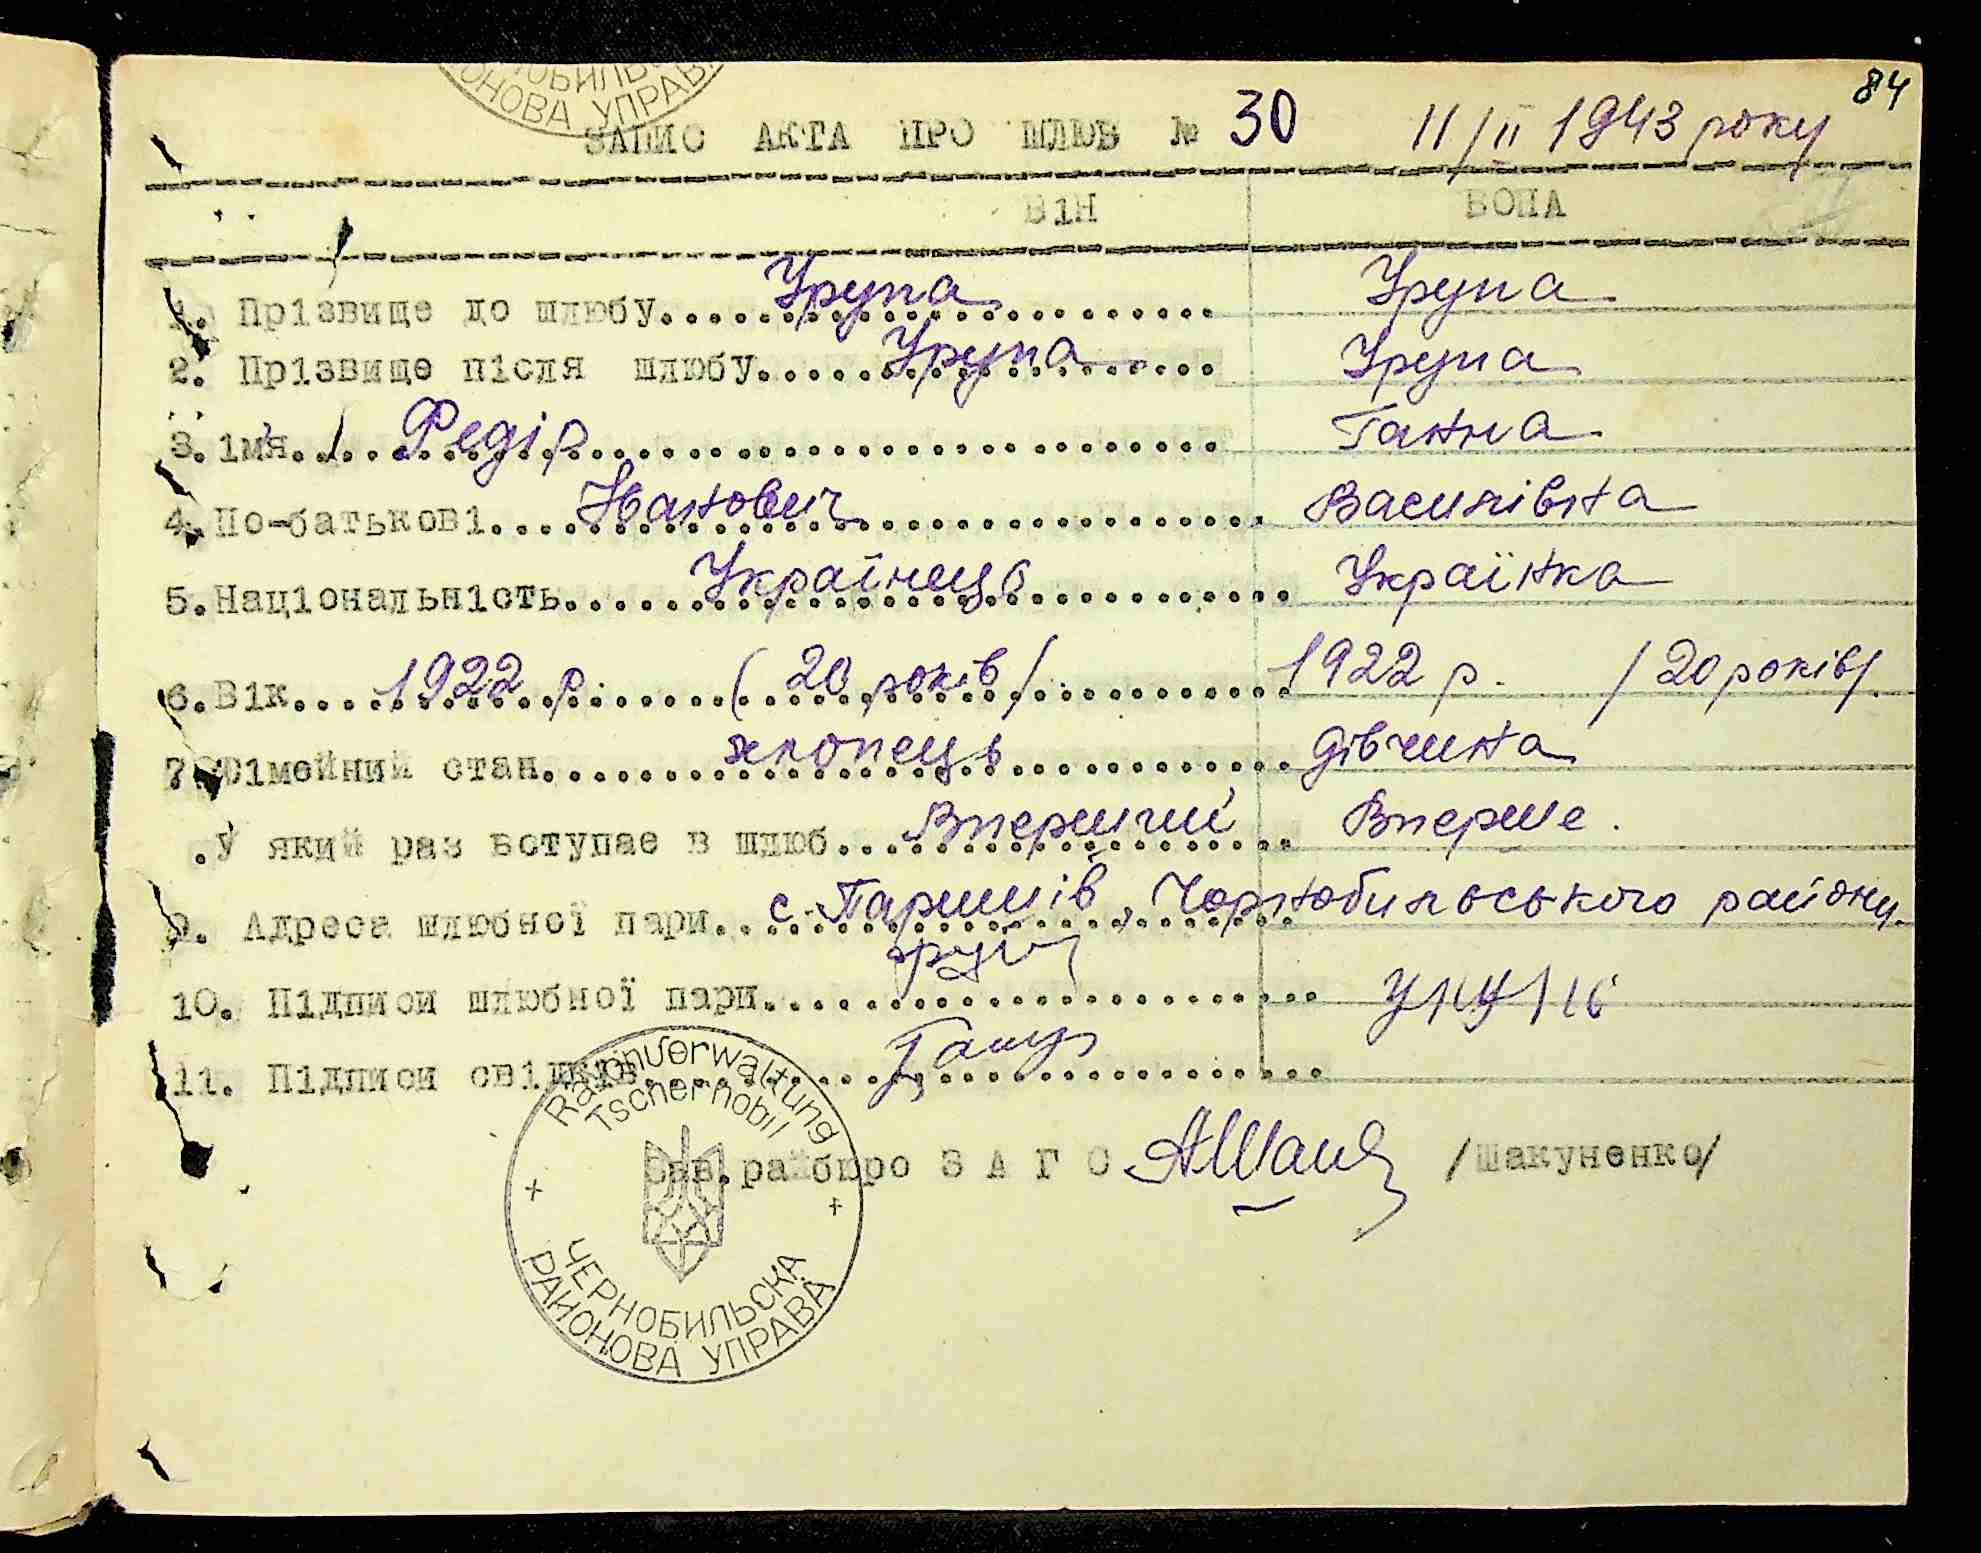 84
ОБИЛЬС
ОНОВА УПРАВ
ЗАПИС АКТА ПРО ШЛЮБ № 30 11/II 1943 року
ВІН ВОНА
1. Прізвище до шлюбу Урупа Урупа
2. Прізвище після шлюбу Урупа Урупа
3. імя Федір Ганна
4. По-батькові Іванович Василівна
5. Національність Українець Українка
6. Вік 1922 р. (20 років/ 1922 р. /20 років/.
7. Сімейний стан хлопець дівчина
.У який раз вступає в шлюб Вперший Вперше.
9. Адреса шлюбної пари с. Паришів, Чорнобильського району
10. Підписи шлюбної пари
11. Підписи свідків
Rayonverwaltung
Tschernobil
Зав. райбюро З А Г С /Шакуненко/
ЧЕРНОБИЛЬСКА
РАЙОНОВА УПРАВА